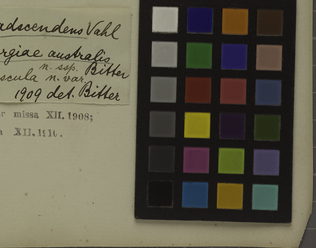 adscendens Vahl
rgiae australis
n. ssp. Bitter
scula n. var.
1909 det. Bitter
r missa XII. 1908;
a XII. 1910.